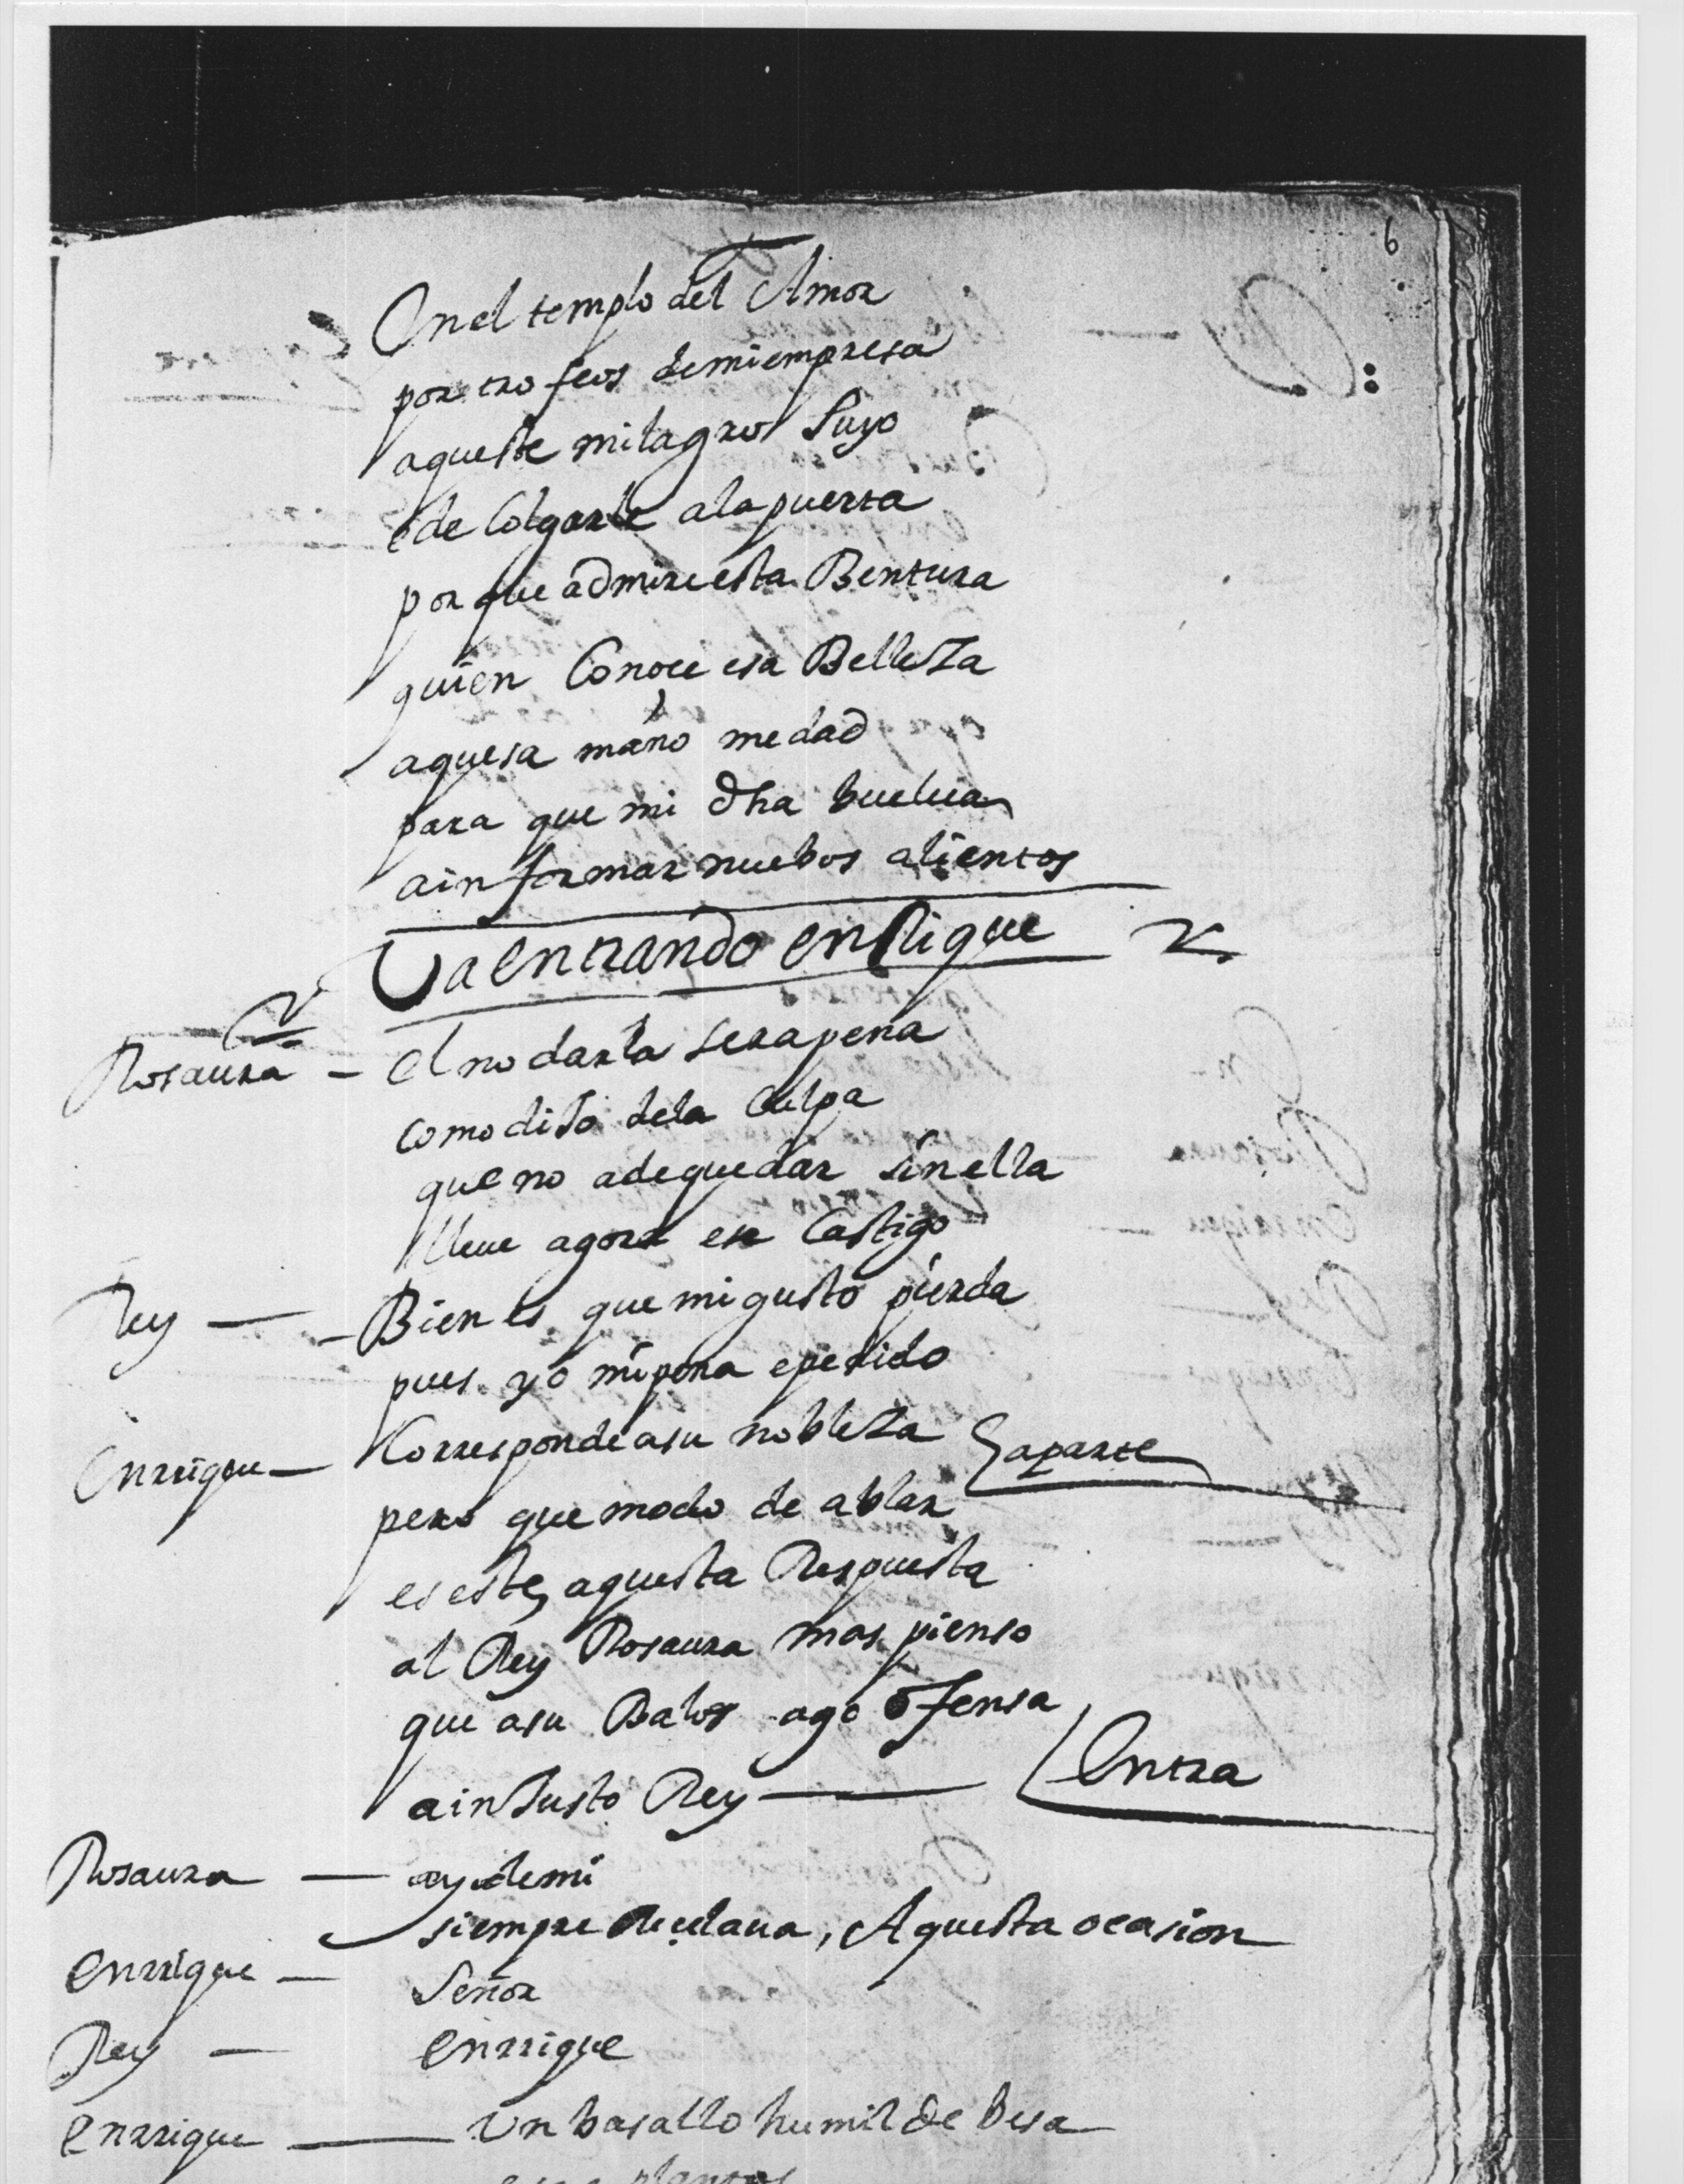 6
En el templo del Amor
por trofeos de mi empresa
aqueste milagro suyo
e de Colgarle a la puerta
por que admire esta Bentura
quien Conoce esa Belleza
aquesa mano me dad
para que mi dha buelua
a informar nuebos alientos
Va entrando enRique
Rosaura – el no darla sera pena
como diso de la Culpa
que no a de quedar sin ella
lleue agora ese Castigo
Rey — Bien es que mi gusto pierda
pues yo mi pena e pedido
Enrrique – Corresponde a su nobleza aparte
pero que modo de ablar
es este, aquesta Respuesta
al Rey Rosaura mas pienso
que a su Balor ago ofensa
a insusto Rey — Entra
Rosaura — ay de mi
siempre Recelaua, Aquesta ocasion
enrrique — Señor
Rey — enrrique
enrrique — Un basallo humilde besa
esas plantas